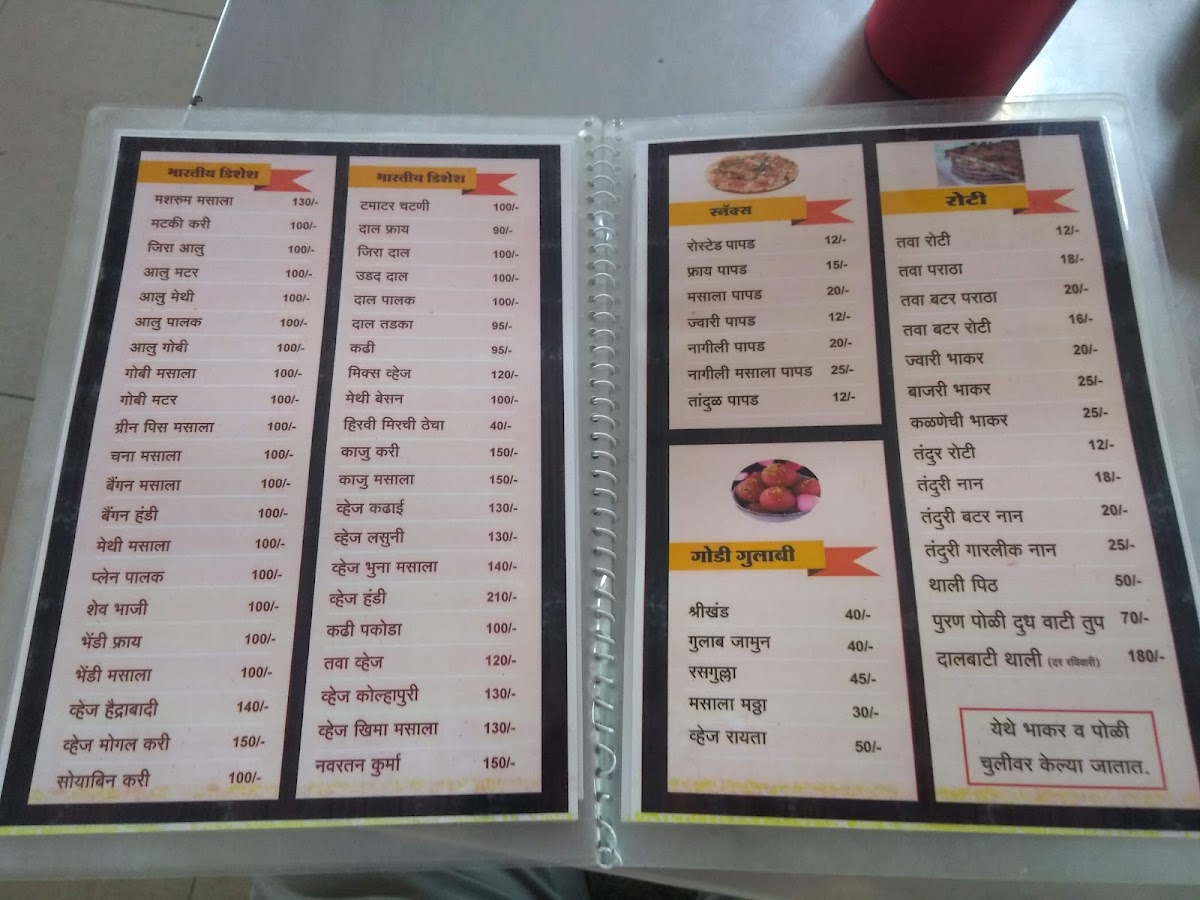 भारतीय डिशेश
मशरुम मसाला 130/-
मटकी करी 100/-
जिरा आलु 100/-
आलु मटर 100/-
आलु मेथी 100/-
आलु पालक 100/-
आलु गोबी 100/-
गोबी मसाला 100/-
गोबी मटर 100/-
ग्रीन पिस मसाला 100/-
चना मसाला 100/-
बैंगन मसाला 100/-
बैंगन हंडी 100/-
मेथी मसाला 100/-
प्लेन पालक 100/-
शेव भाजी 100/-
भेंडी फ्राय 100/-
भेंडी मसाला 100/-
व्हेज हैद्राबादी 140/-
व्हेज मोगल करी 150/-
सोयाबिन करी 100/-
भारतीय डिशेश
टमाटर चटणी 100/-
दाल फ्राय 90/-
जिरा दाल 100/-
उडद दाल 100/-
दाल पालक 100/-
दाल तडका 95/-
कढी 95/-
मिक्स व्हेज 120/-
मेथी बेसन 100/-
हिरवी मिरची ठेचा 40/-
काजु करी 150/-
काजु मसाला 150/-
व्हेज कढाई 130/-
व्हेज लसुनी 130/-
व्हेज भुना मसाला 140/-
व्हेज हंडी 210/-
कढी पकोडा 100/-
तवा व्हेज 120/-
व्हेज कोल्हापुरी 130/-
व्हेज खिमा मसाला 130/-
नवरतन कुर्मा 150/-
स्नॅक्स
रोस्टेड पापड 12/-
फ्राय पापड 15/-
मसाला पापड 20/-
ज्वारी पापड 12/-
नागीली पापड 20/-
नागीली मसाला पापड 25/-
तांदुळ पापड 12/-
गोडी गुलाबी
श्रीखंड 40/-
गुलाब जामुन 40/-
रसगुल्ला 45/-
मसाला मठ्ठा 30/-
व्हेज रायता 50/-
रोटी
तवा रोटी 12/-
तवा पराठा 18/-
तवा बटर पराठा 20/-
तवा बटर रोटी 16/-
ज्वारी भाकर 20/-
बाजरी भाकर 25/-
कळणेची भाकर 25/-
तंदुर रोटी 12/-
तंदुरी नान 18/-
तंदुरी बटर नान 20/-
तंदुरी गारलीक नान 25/-
थाली पिठ 50/-
पुरण पोळी दुध वाटी तुप 70/-
दालबाटी थाली (दर रविवारी) 180/-
येथे भाकर व पोळी
चुलीवर केल्या जातात.